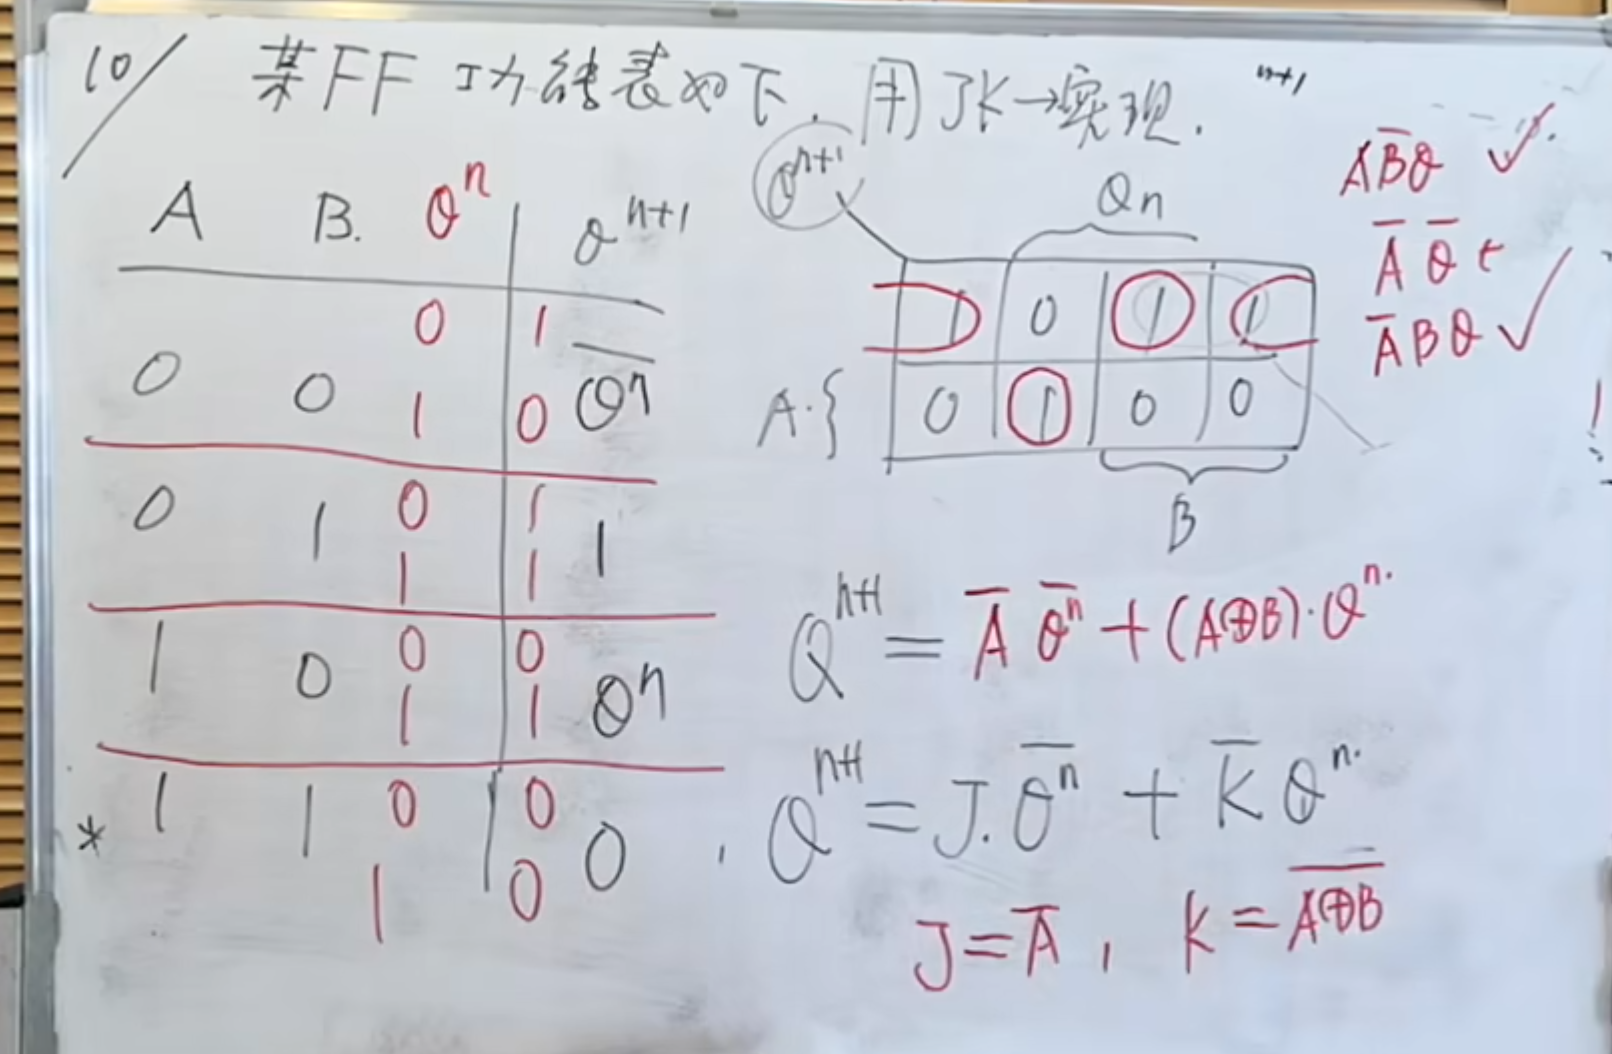 10/ 某FF 功能表如下. 用JK→实现.
n+1
A B. Qⁿ Qⁿ⁺¹
0 1
0 0 1 0 Q̅ⁿ
0 1 0 1 1
1 1
1 0 0 0 Qⁿ
1 1
* 1 1 0 0 0
1 0
Qⁿ⁺¹
Qn
1 0 1 1
A. { 0 1 0 0
B
AB̅Q ✓
A̅ Q̅ +
A̅BQ ✓
Qⁿ⁺¹ = A̅ Q̅ⁿ + (A⊕B)·Qⁿ·
Qⁿ⁺¹ = J.Q̅ⁿ + K̅Qⁿ·
J = A̅, K = \overline{A⊕B}